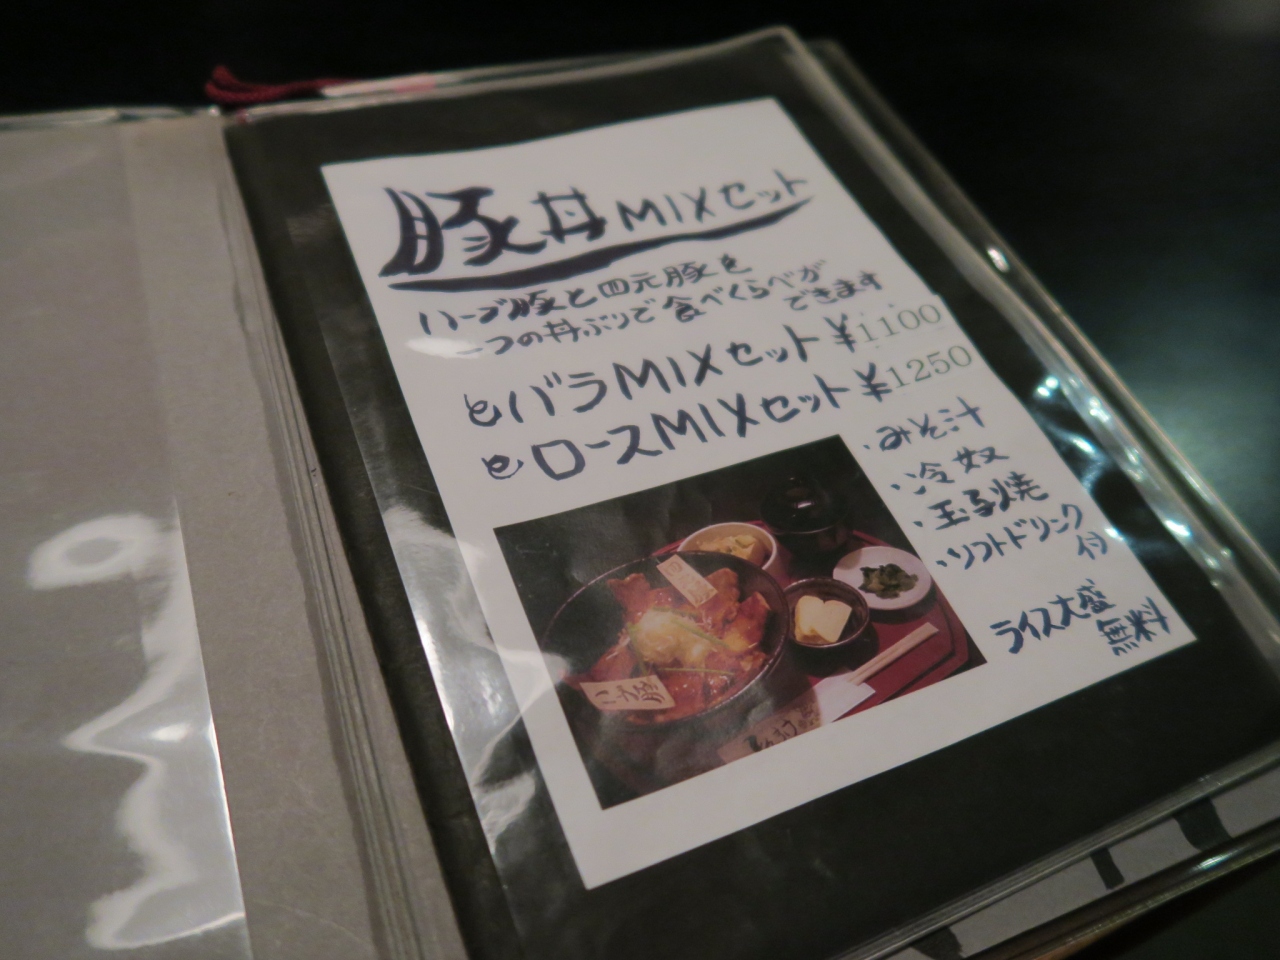 豚丼MIXセット
ハーブ豚と四元豚を
一つの丼ぶりで食べくらべが
できます
とバラMIXセット ¥1100
とロースMIXセット ¥1250
・みそ汁
・冷奴
・玉子焼
・ソフトドリンク
付
ライス大盛
無料
ハーブ豚